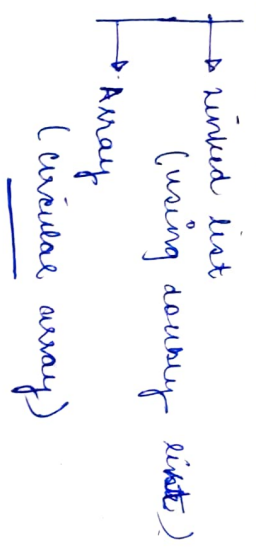 Linked list
(using doubly list)
Array
(circular array)